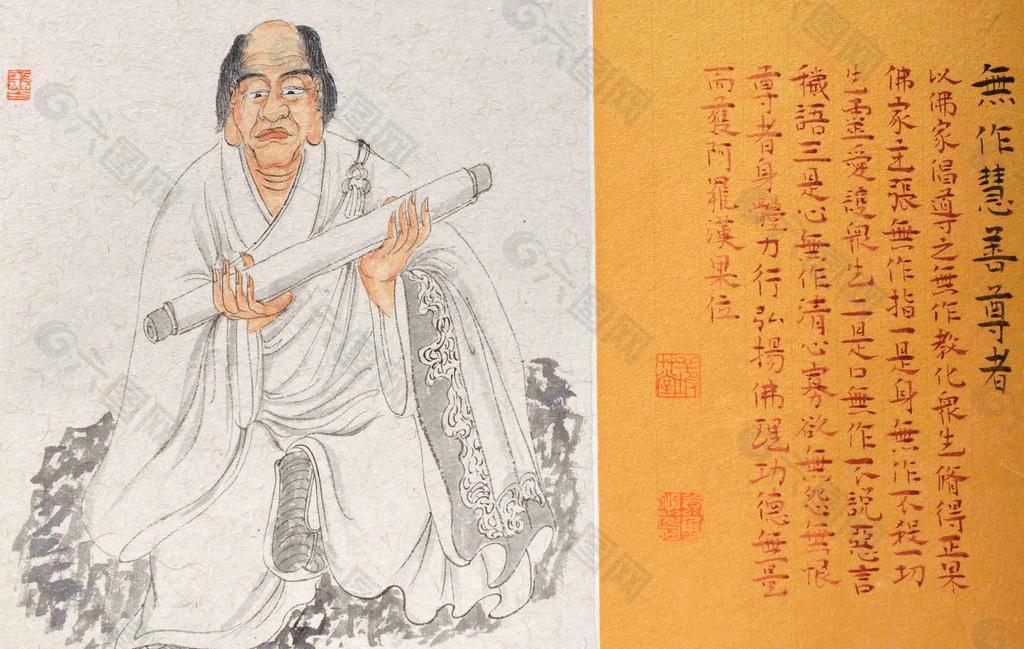 無作慧善尊者
以佛家倡導之無作教化衆生脩得正果
佛家主張無作指一是身無作不殺一切
生靈愛護衆生二是口無作不説惡言
穢語三是心無作清心寡欲無怨無恨
尊者身體力行弘揚佛理功德無量
而獲阿羅漢果位
六图网